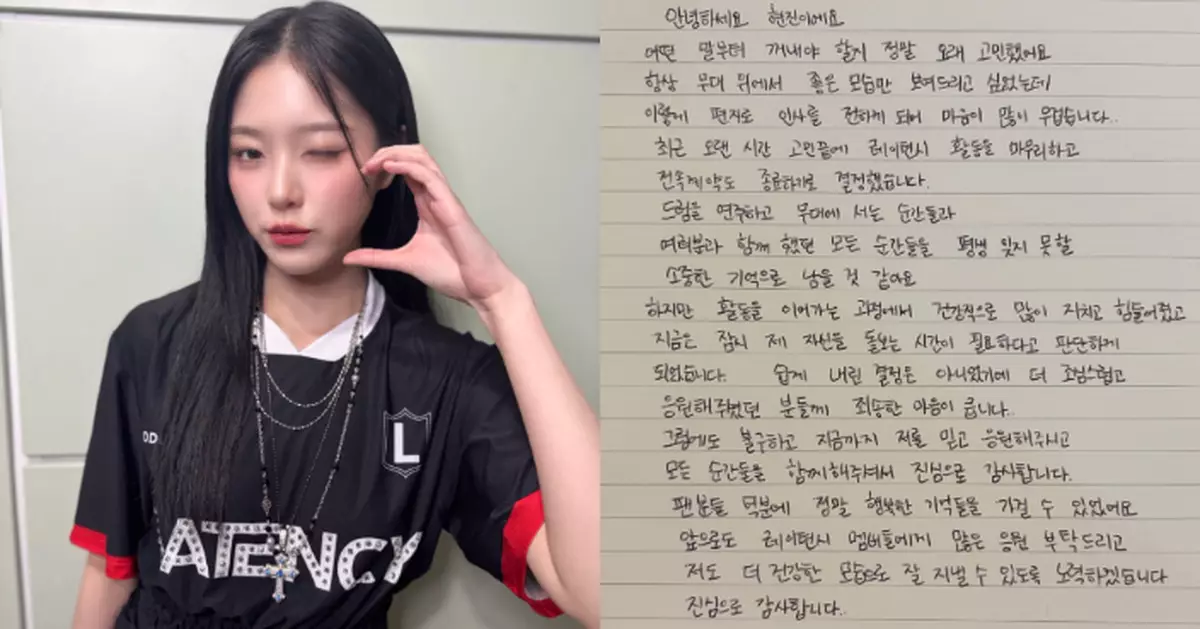 DD
L
ATENCY
안녕하세요 현진이에요
어떤 말부터 꺼내야 할지 정말 오래 고민했어요
항상 무대 위에서 좋은 모습만 보여드리고 싶었는데
이렇게 편지로 인사를 전하게 되어 마음이 많이 무겁습니다..
최근 오랜 시간 고민끝에 레이턴시 활동을 마무리하고
전속계약도 종료하기로 결정했습니다.
드럼을 연주하고 무대에 서는 순간들과
여러분과 함께 했던 모든 순간들을 평생 잊지 못할
소중한 기억으로 남을 것 같아요
하지만 활동을 이어가는 과정에서 건강적으로 많이 지치고 힘들어졌고
지금은 잠시 제 자신을 돌보는 시간이 필요하다고 판단하게
되었습니다. 쉽게 내린 결정은 아니었기에 더 조심스럽고
응원해주셨던 분들께 죄송한 마음이 큽니다..
그럼에도 불구하고 지금까지 저를 믿고 응원해주시고
모든 순간들을 함께해주셔서 진심으로 감사합니다.
팬분들 덕분에 정말 행복한 기억들을 가질 수 있었어요
앞으로도 레이턴시 멤버들에게 많은 응원 부탁드리고
저도 더 건강한 모습으로 잘 지낼 수 있도록 노력하겠습니다
진심으로 감사합니다..